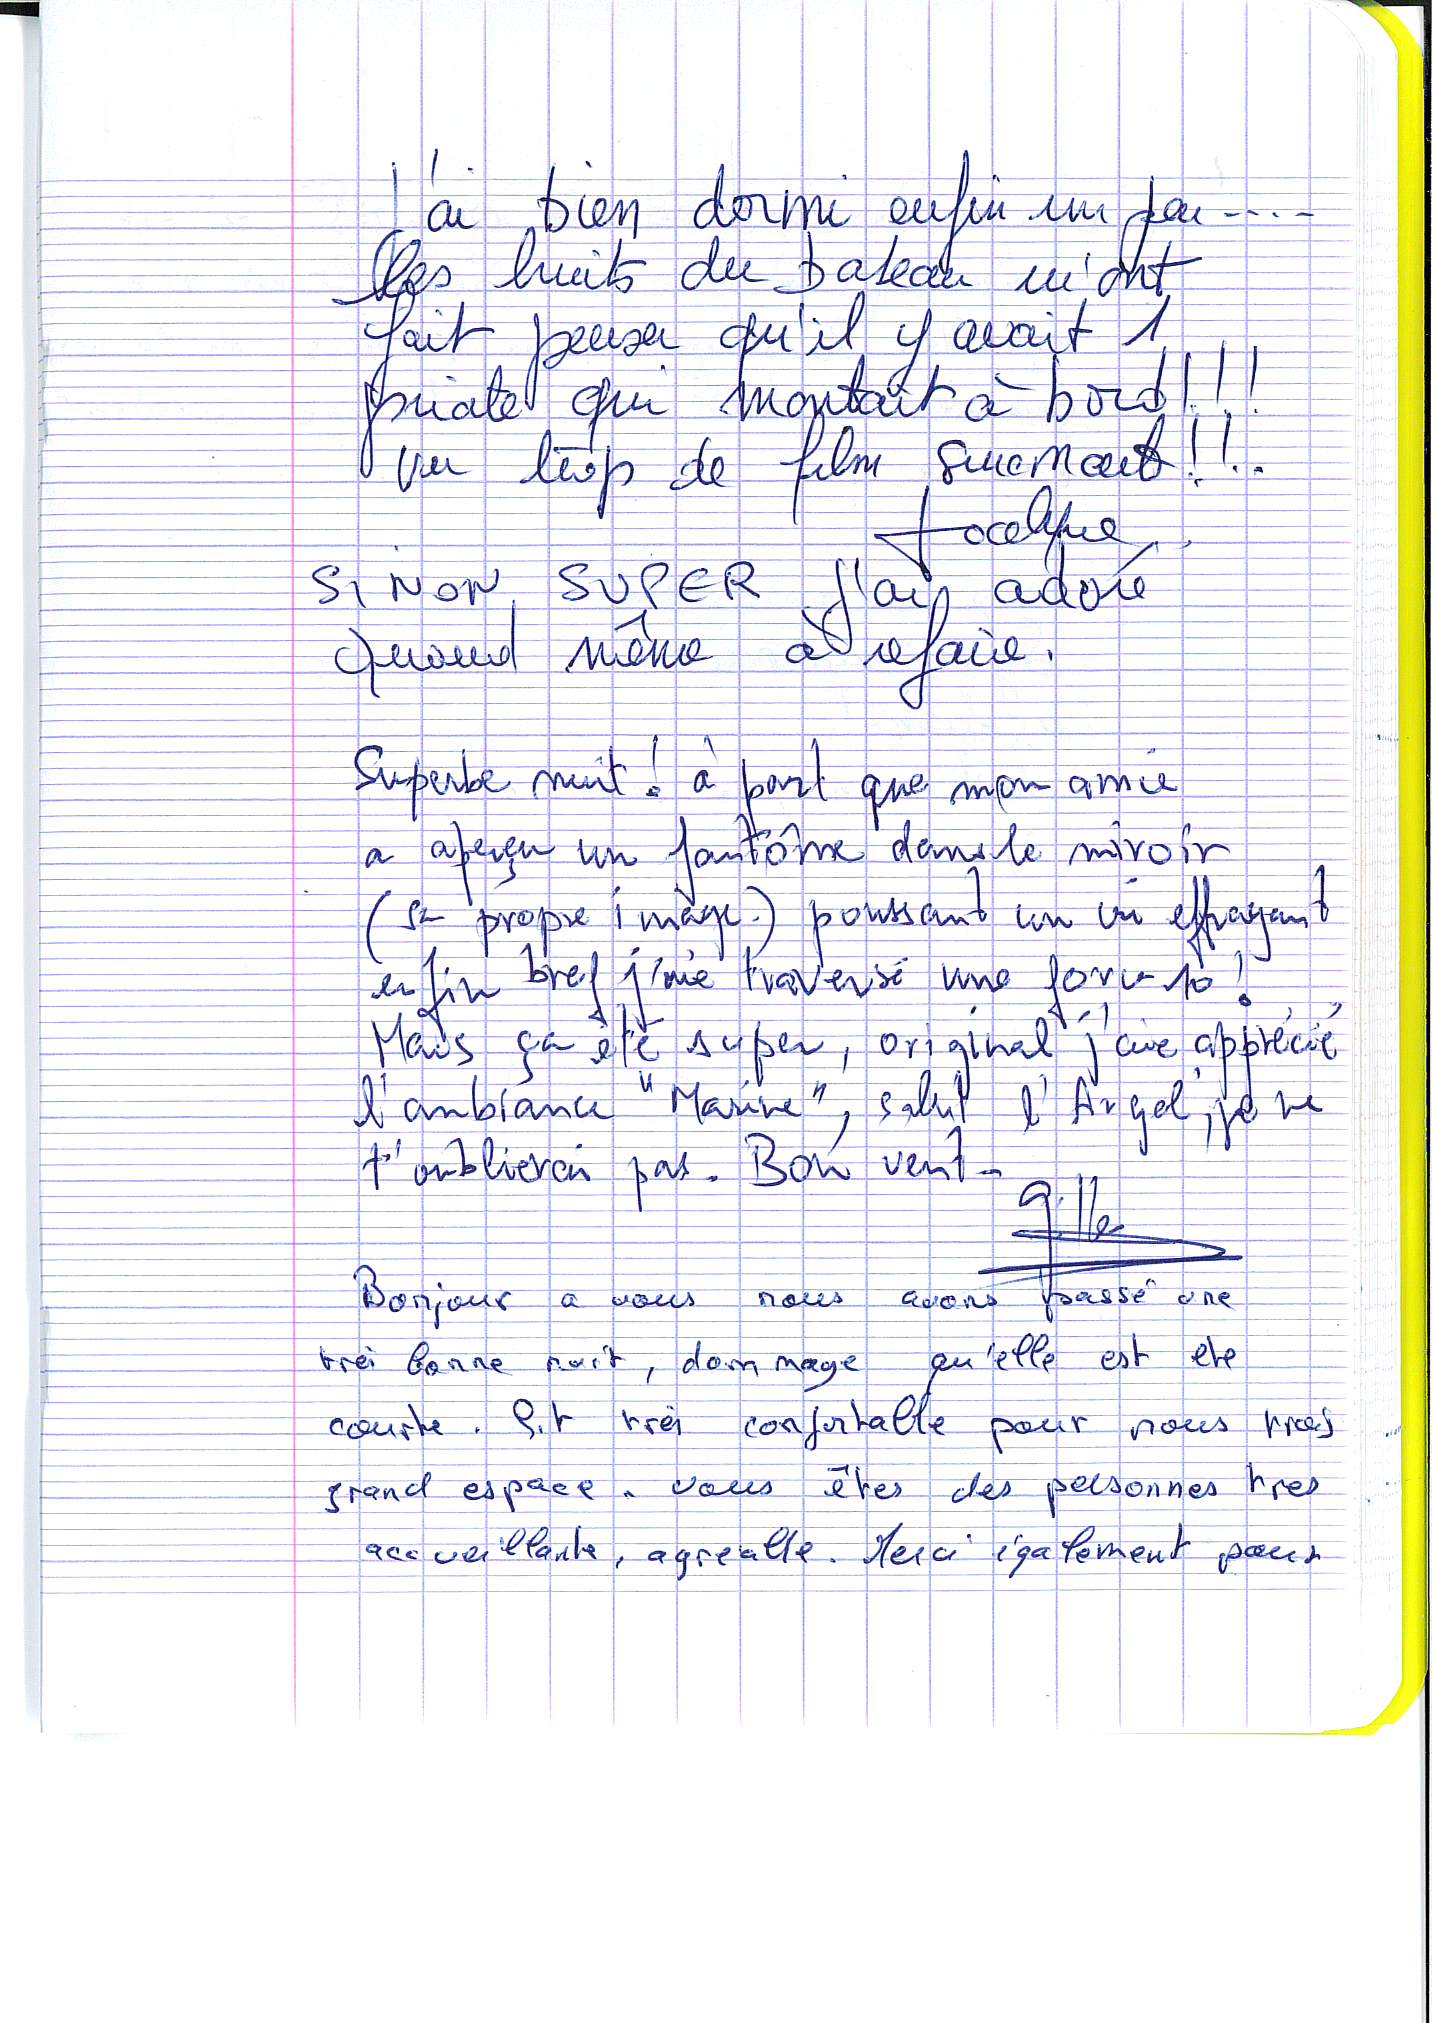 J'ai bien dormi enfin un peu ----
les bruits du bateau m'ont
fait penser qu'il y avait 1
pirate qui montait à bord!!!
vu trop de film surement!!..
Jocelyne
SiNON SUPER j'ai adoré
Quand même à refaire.
Superbe nuit! à part que mon amie
a aperçu un fantôme dans le miroir
(sa propre image.) poussant un cri effrayant
enfin bref j'aie traversé une force 10!
Mais ça été super, original j'aie apprécié
l'ambiance "Marine", salut l'Argol, je ne
t'oublierai pas. Bon vent-
Gilles
Bonjour a vous nous avons passé une
très bonne nuit, dommage qu'elle est ete
courte. Lit très confortable pour nous trois
grand espace. vous êtes des personnes tres
accueillante, agreable. Merci également pour